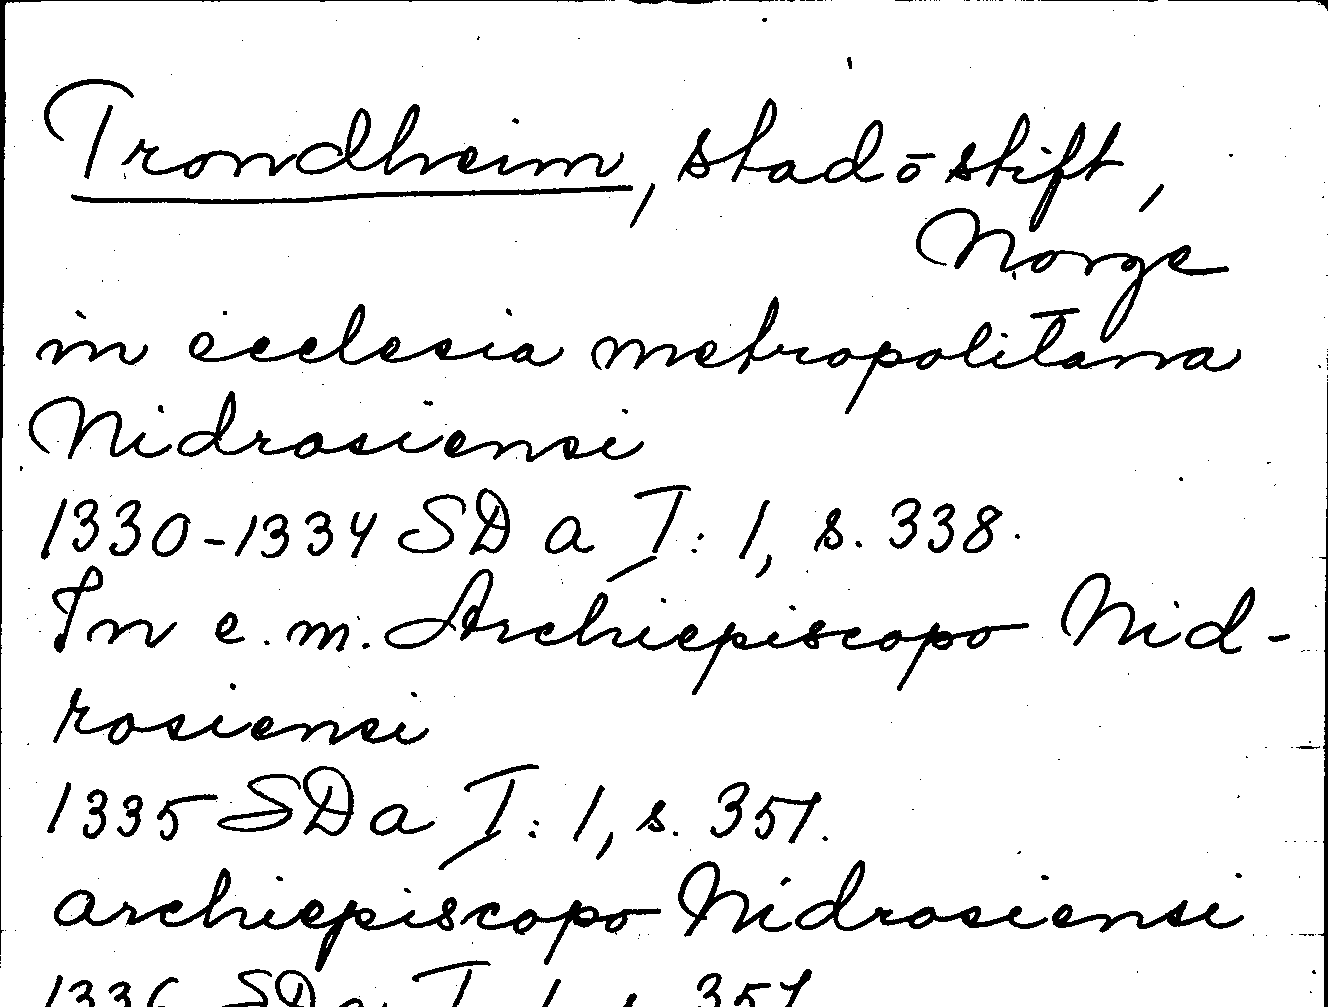 Trondheim, stad ō stift,
Norge
in ecclesia metropolitana
Nidrosiensi
1330-1334 SD a I: 1, s. 338.
In e. m. Archiepiscopo Nid-
rosiensi
1335 SD a I: 1, s. 357.
archiepiscopo Nidrosiensi
1336 SD a I: 1, s. 357